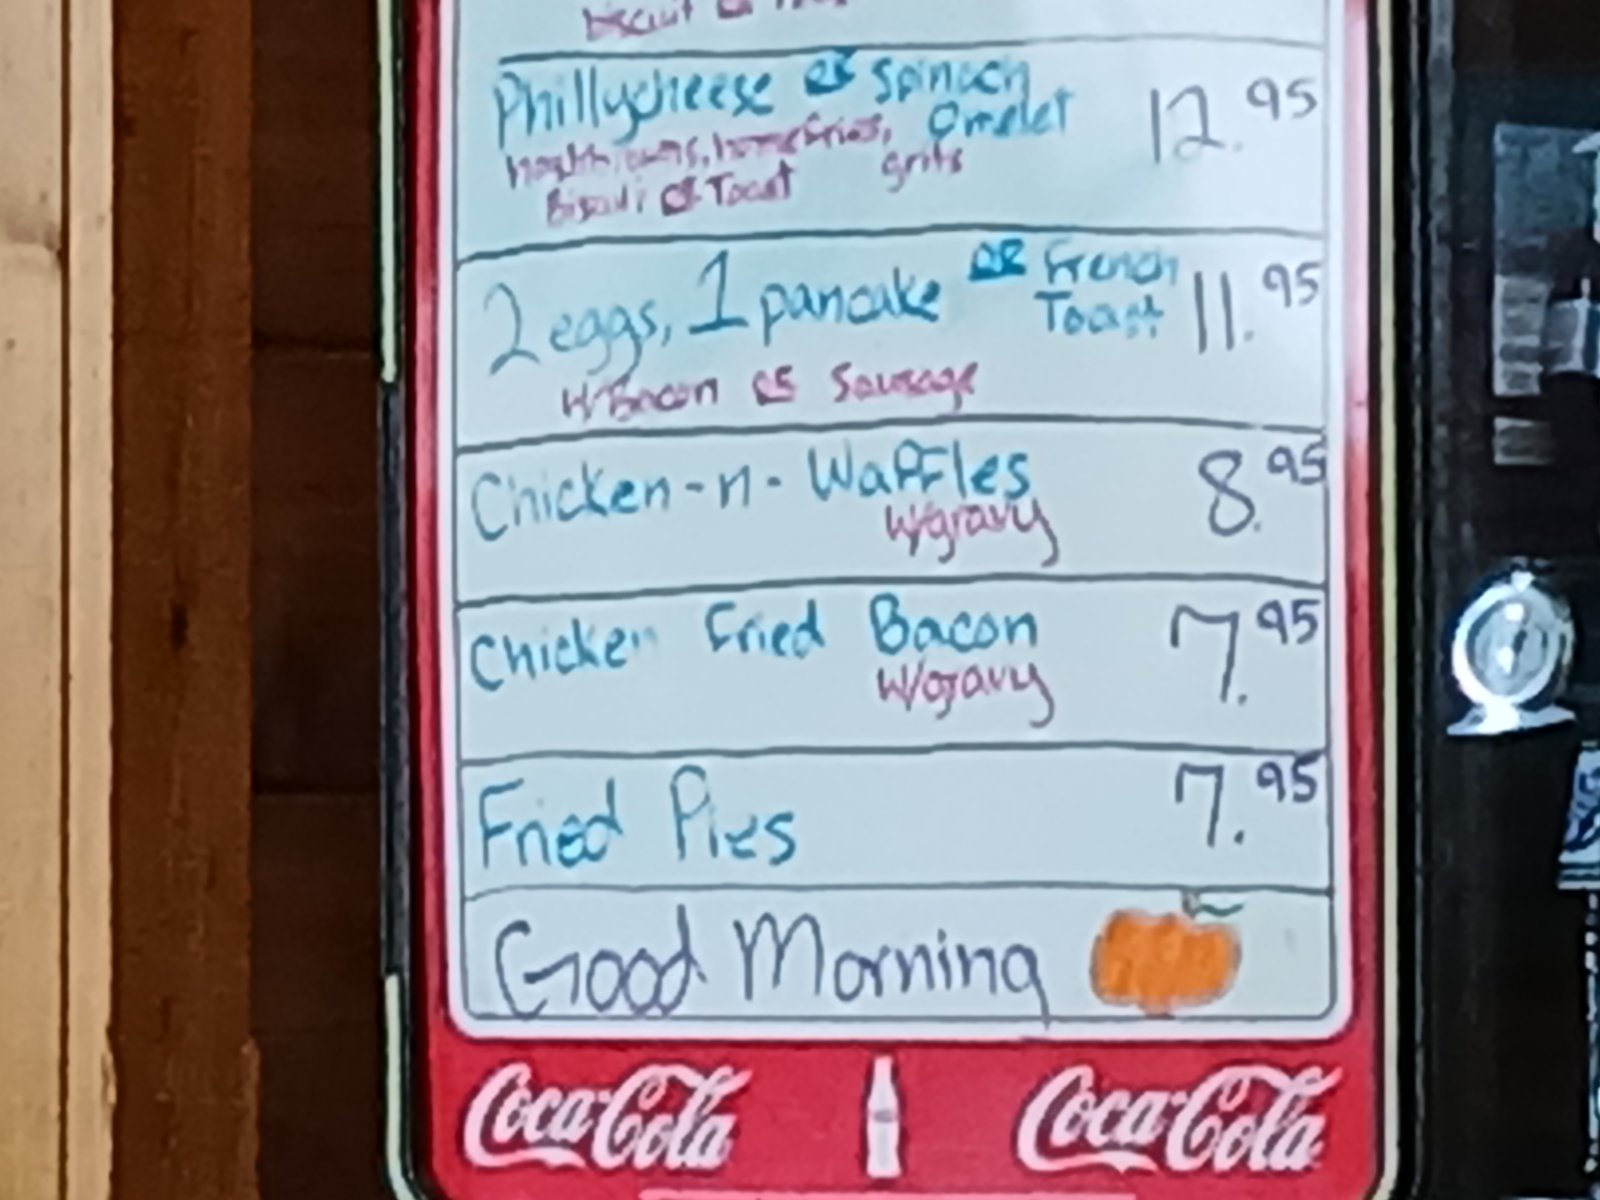 biscuit or
Phillycheese or Spinach
Omelet 12.95
hashbrowns, homefries, grits
Biscuit or Toast
2 eggs, 1 pancake OR French
Toast 11.95
W/Bacon or Sausage
Chicken-n-Waffles 8.95
W/gravy
Chicken Fried Bacon 7.95
W/gravy
Fried Pies 7.95
Good Morning
Coca-Cola Coca-Cola